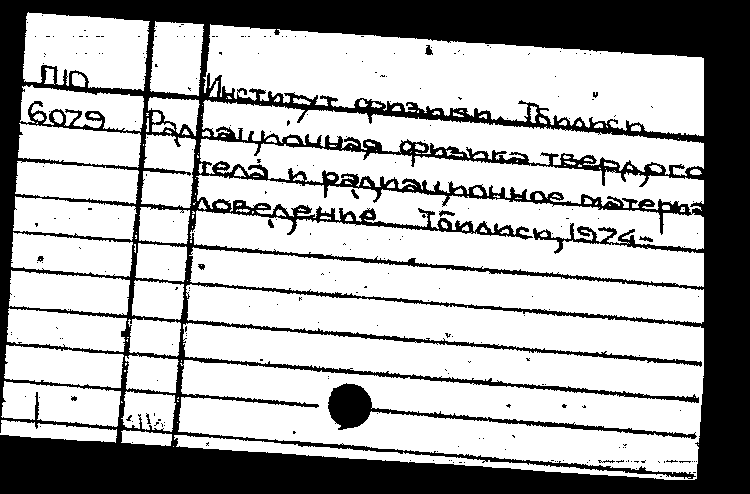 П10
Институт физики. Тбилиси
6029 Радиационная физика твердого
тела и радиационное материа
ловедение. Тбилиси, 1974-